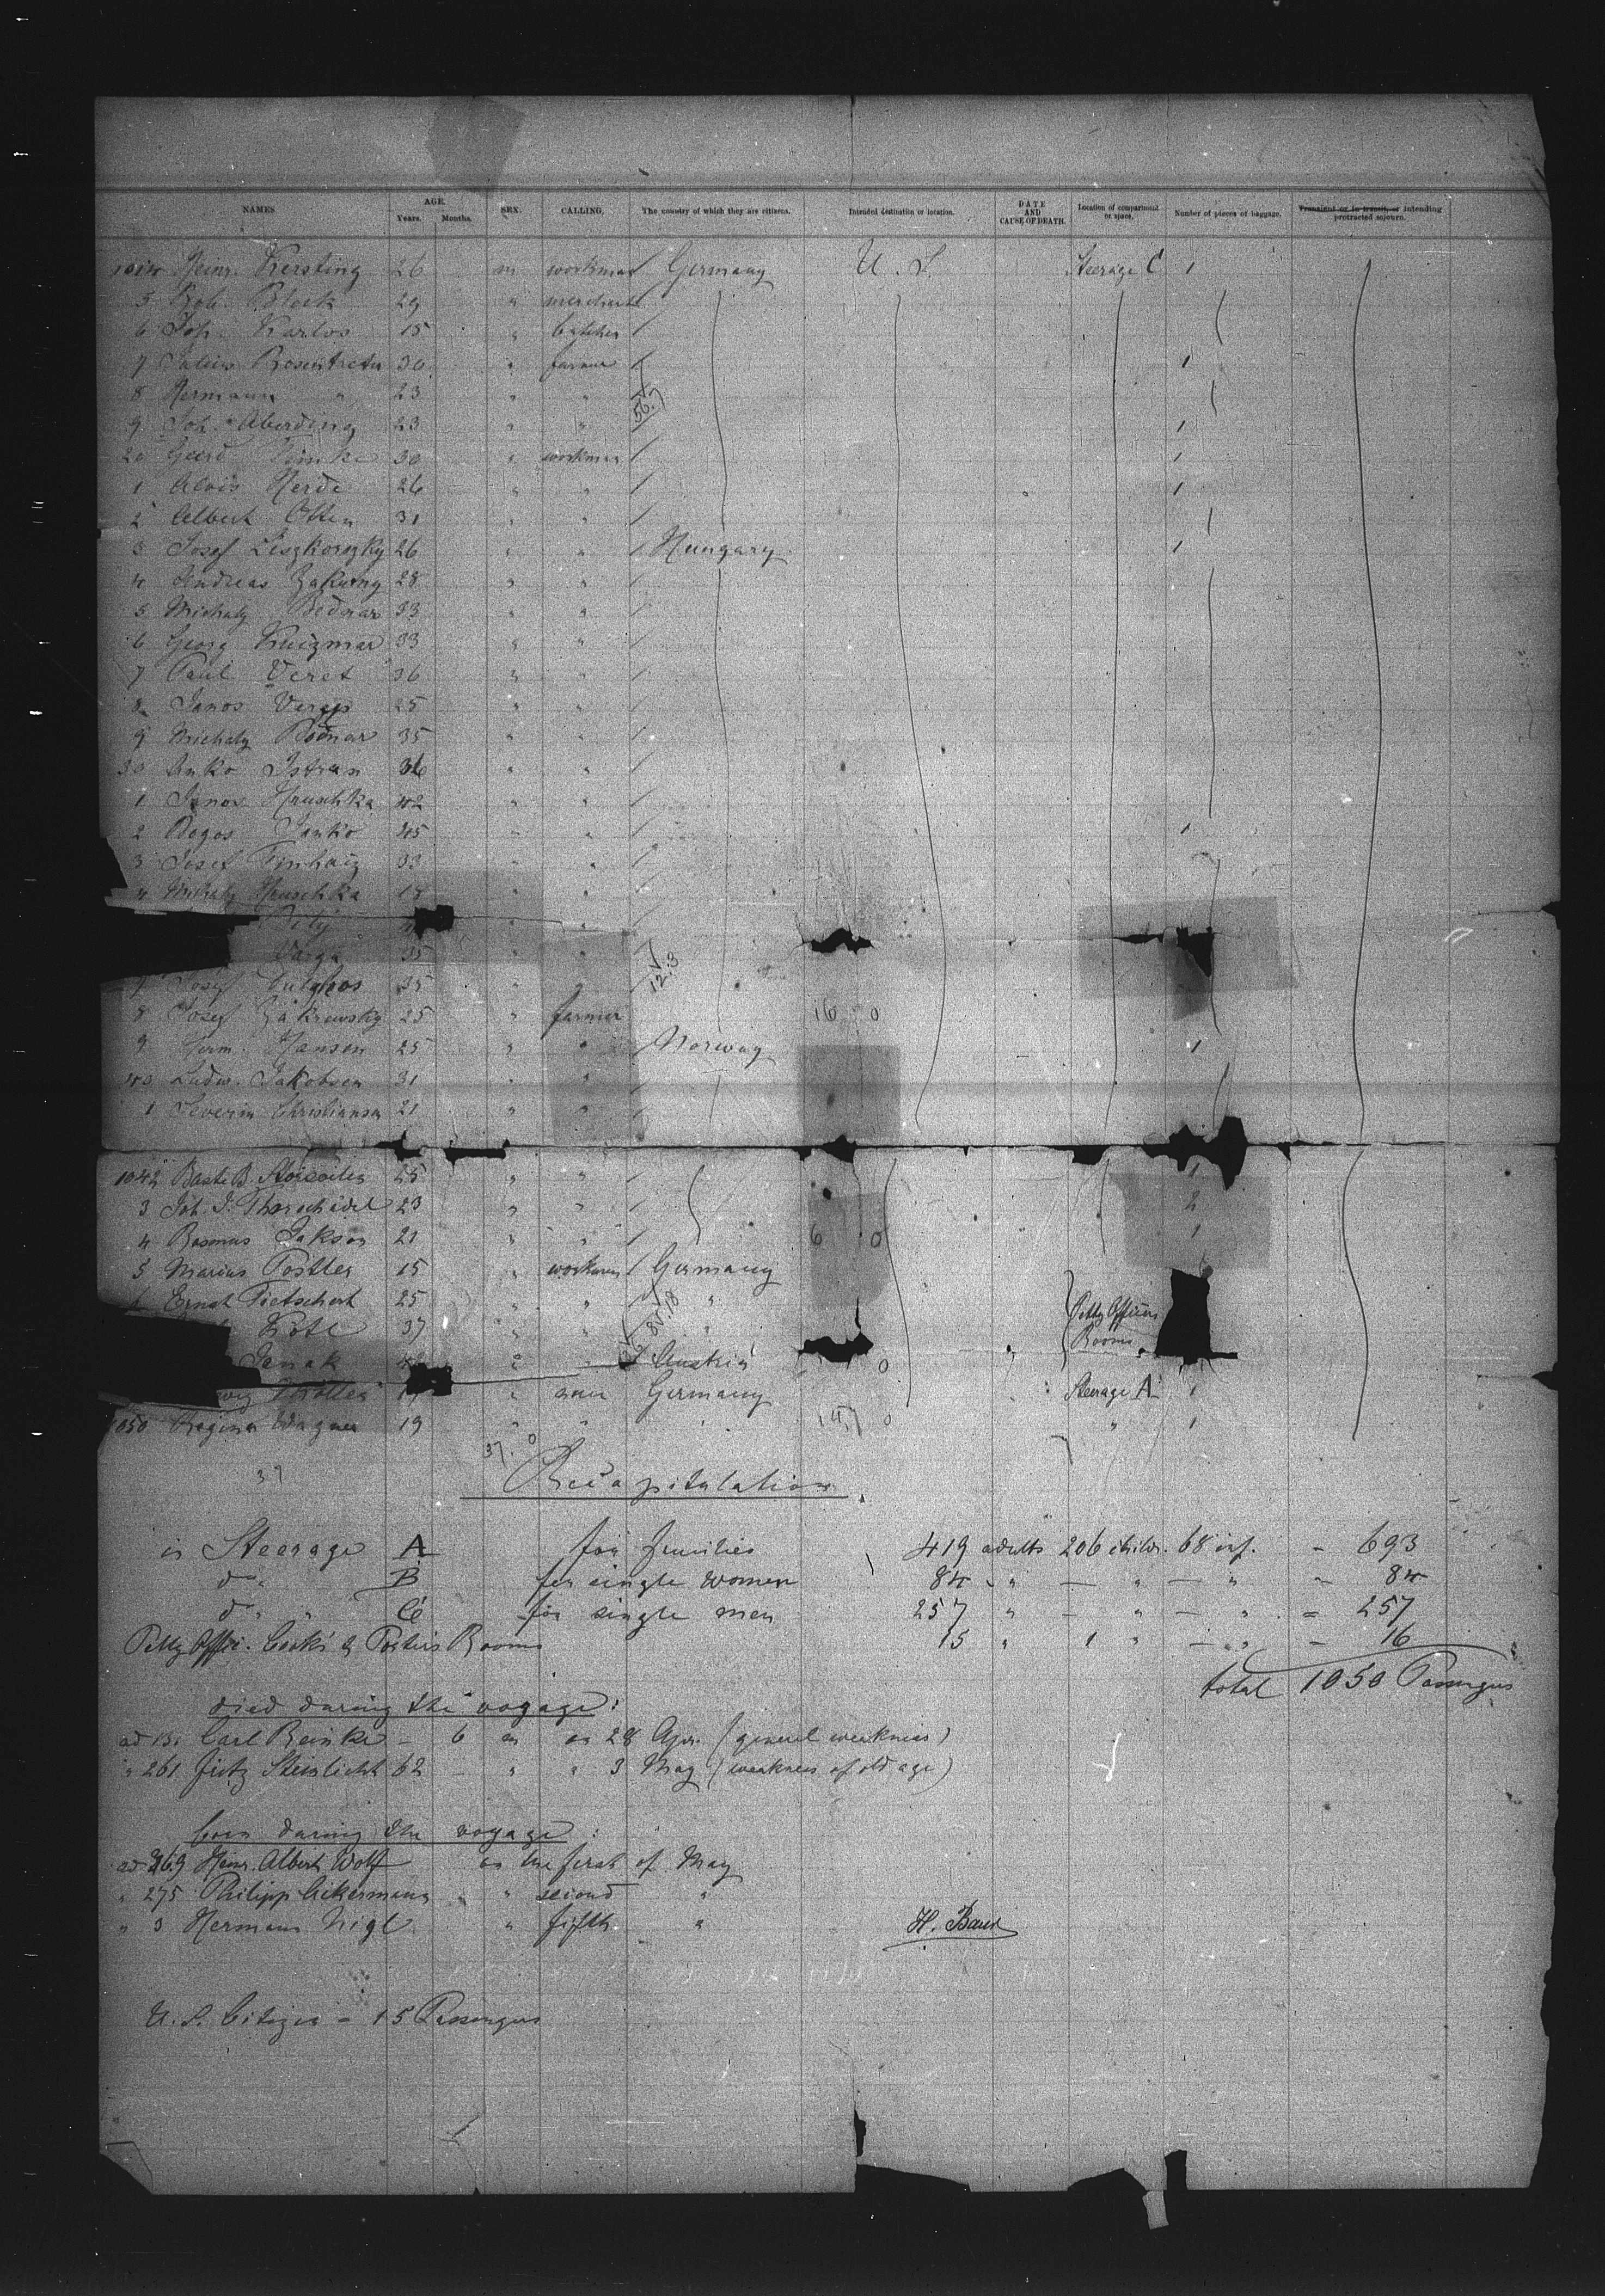 NAMES. AGE. Years. Months. SEX. CALLING. The country of which they are citizens. Intended destination or location. DATE AND CAUSE OF DEATH. Location of compartment or space. Number of pieces of baggage. Transient or in transit, or intending protracted sojourn.
1014 Heinr. Kersting 26 m workman / Germany U. S. Steerage C 1
5 Rob. Block 29 " merchant /
6 Joh. Karlos 15 " butcher /
7 Julius Rosentreter 30 " farmer / 1
8 Hermann " 23 " "
9 Joh. Aberding 23 " " / 1
20 Gerd 30 " workman / 1
1 Alois Herde 26 " " / 1
2 Albert Otten 31 " " /
3 Josef 26 " " / Hungary 1
4 Andreas 28 " " /
5 Michaly Bednar 33 " " /
6 Georg Kuizmar 33 " " /
7 Paul Veret 36 " " /
8 Janos 25 " " /
9 Michaly Bodnar 35 " " /
30 Anko Istvan 36 " " /
1 Janos Hruschka 42 " " /
2 Bogos Janko 45 " " / 1
3 Josef 33 " " /
4 Michaly Hruschka 18 " " /
" " /
Varga 35 " "
7 Josef 35 " " / 12.3
8 Josef Zakrewsky 25 " farmer 16 0
9 Herm. Hansen 25 " " / Norway 1
40 Ludw. Jakobsen 31 " " /
1 Severin Christiansen 21 " " /
1042 25 " " / 1
3 Joh. J. 23 " " / 2
4 Rasmus Jakson 21 " " / 6 0 1
5 Marius Postler 15 " workman / Germany
6 Ernst Pietschert 25 " " / " Petty Officers
37 " " " Rooms
Janak " Austria 0
19 " none Germany Steerage A 1
1050 Regina Wagner 19 " " " 157 0 " 1
37 37. 0
Recapitulation.
in Steerage A for families 419 adults 206 childr. 68 inf. = 693
do. B for single women 84 " — " — " = 84
do. " C for single men 257 " — " — " = 257
Petty Offic. Cooks & Porters Rooms 15 " 1 " — " = 16
total 1050 Passengers
died during the voyage:
Carl Reinke - 6 m on 28 Apr. (general weakness)
" 261 Fritz Steinlicht 62 — " " 3 May (weakness of old age)
born during the voyage:
ad 269 Heinr. Albert Wolf on the first of May
" 275 Philipp Ackermann " " second "
" 3 Hermann Nigl " fifth " H. Baur
U. S. Citizen = 15 Passengers